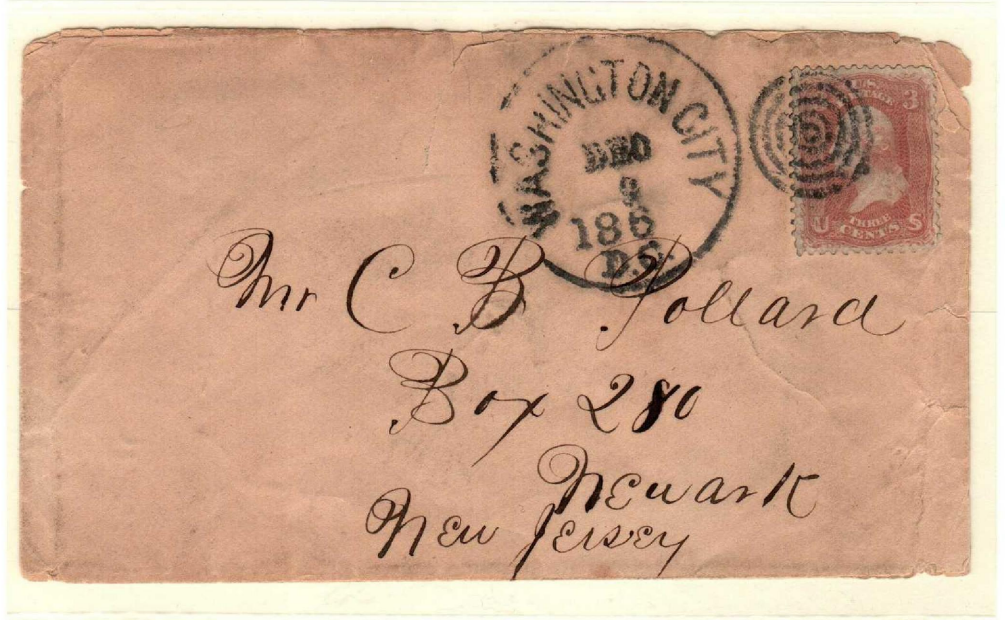 WASHINGTON CITY
DEC
186
D.C.
U.S.
3
U S
THREE
CENTS
Mr C B Pollard
Box 280
Newark
New Jersey